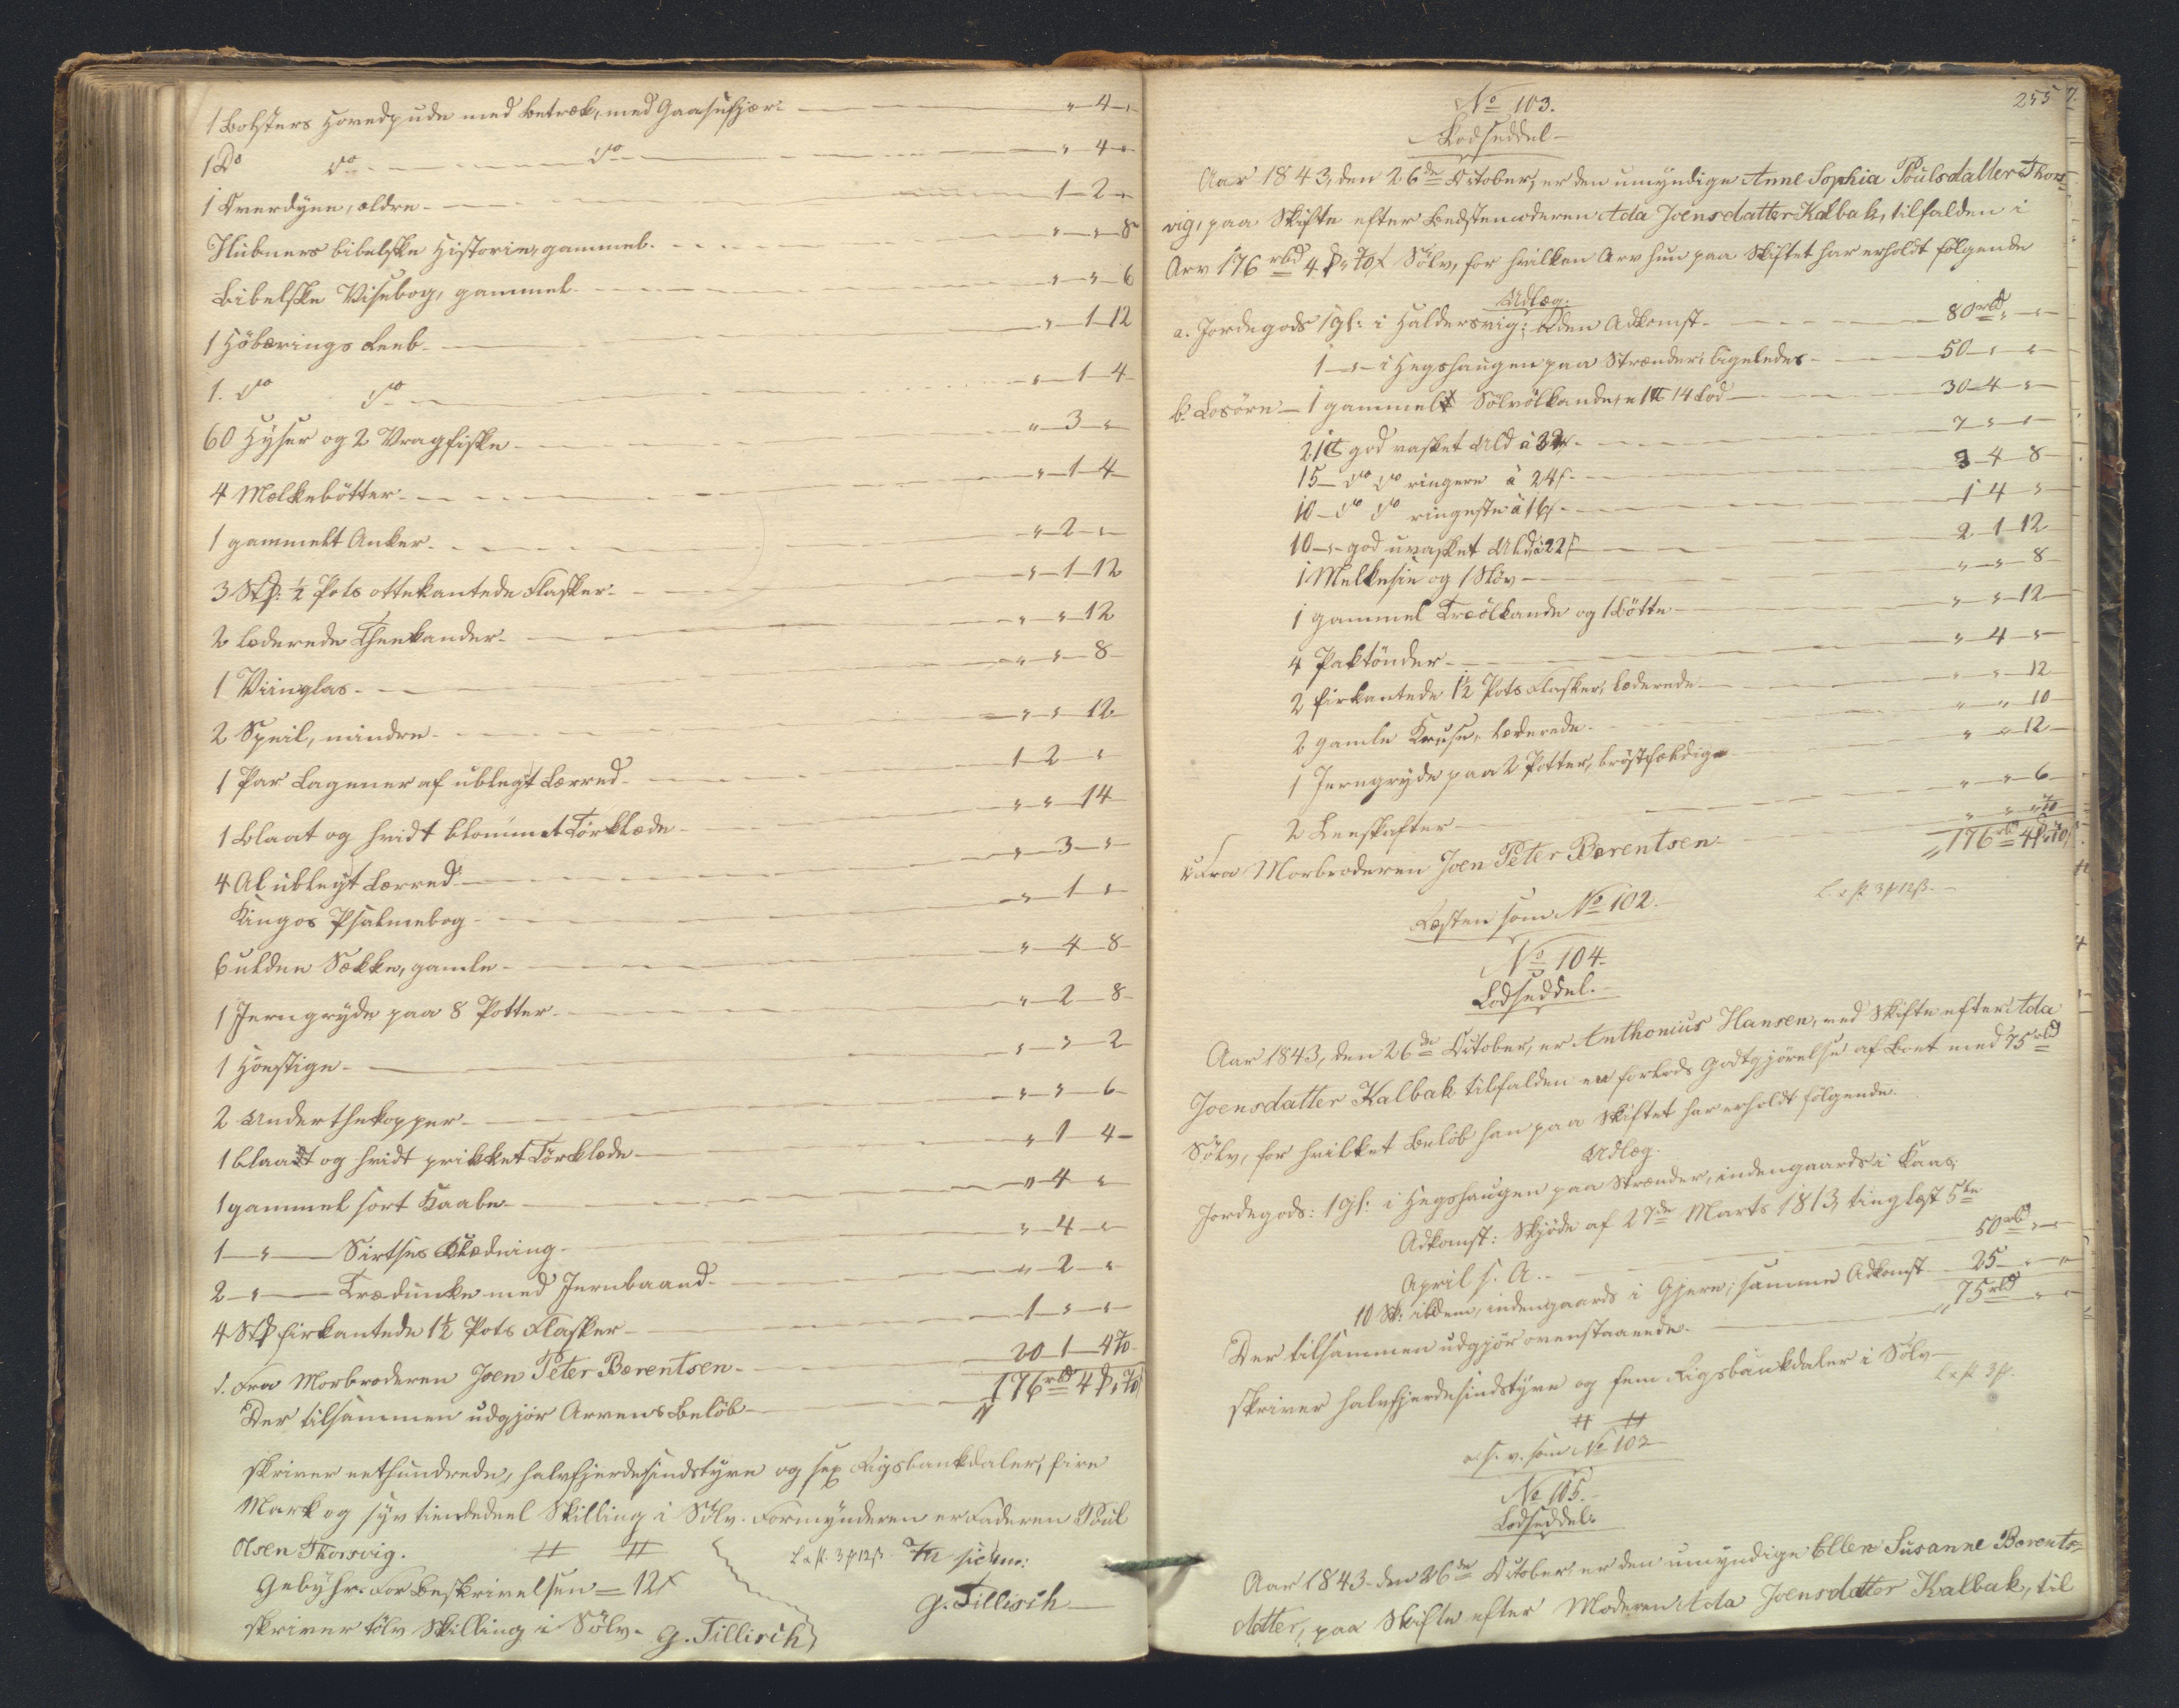 1 Bolsters Hovedpude med Betræk, med Gaasefjær " 4 "
1 Do do do " 4 "
1 Overdyne, ældre 1 2 "
Hübners bibelske Historie, gammel. " " 8
Bibelske Visebog, gammel " " 6
1 Höbærings Leeb " 1 12
1. do do " 1 4
60 Hyser og 2 Vragfiske " 3 "
4 Melkebötter " 1 4
1 gammelt Anker " 2 "
3 Stk: ½ Pots ottekantede Flasker " 1 12
2 læderede Theekander " " 12
1 Viinglas " " 8
2 Speil, mindre " " 12
1 Par Lagener af ublegt Lærred 1 2 "
1 blaat og hvidt blommet Törklæde " " 14
4 Al ublegt Lærred " 3 "
Kingos Psalmebog " 1 "
6 uldne Sække, gamle " 4 8
1 Jerngryde paa 8 Potter " 2 8
1 Hönstige " " 2
2 Underthekopper " " 6
1 blaat og hvidt prikket Törklæde " 1 4
1 gammel sort Kaabe " 4 "
1 " Sirtses Klædning " 4 "
2 " Trædunke med Jernbaand " 2 "
4 Stk firkantede 1½ Pots Flasker 1 " "
d. Fra Morbroderen Joen Peter Bærentsen 20 1 4 7/10
Der tilsammen udgjör Arvens Belöb 176 rbd 4 ℔ " 7/10
skriver eethundrede, halvfjerdesindstyve og sex Rigsbankdaler, fire
Mark og syv tiendedeel Skilling i Sölv. Formynderen er Faderen Poul
Olsen Thorsvig.
Gebyhr. For Beskrivelsen = 12 s
skriver tolv Skilling i Sölv. G. Tillisch
G. Tillisch
255
No 103.
Lodseddel
Aar 1843, den 26de October, er den umyndige Anne Sophia Poulsdatter Thors=
vig, paa Skifte efter Bedstemoderen Ada Joensdatter Kalbak, tilfalden i
Arv 176 rbd 4 ℔ " 7/10 s Sölv, for hvilken Arv hun paa Skiftet har erholdt fölgende
Udlæg.
a. Jordegods 1 gl: i Haldersvig; uden Adkomst 80 rbd " "
1 " i Hegshaugen paa Strænder, ligeledes 50 " "
b. Lösöre 1 gammel Sölvölkande, 1 ℔ 14 Lod 30 4 "
21 ℔ god vasket Uld à 32 s 7 " "
15 do do ringere à 24 s 3 4 8
10 do do ringeste à 16 s 1 4 "
10 " god uvasket Uld à 22 s 2 1 12
1 Melkesie og 1 Slöv " " 8
1 gammel Træölkande og 1 Bötte " " 12
4 Saktönder " 4 "
2 firkantede 1½ Pots Flasker, læderede " " 12
2 gamle Kruse, læderede " " 10
1 Jerngryde paa 2 Potter, bröstfældig " " 12
2 Leeskafter " " 6
c. Fra Morbroderen Joen Peter Bærentsen " " " 7/10
176 rbd 4 ℔ " 7/10 s
Resten som No 102.
No 104.
Lodseddel.
Aar 1843, den 26de October, er Anthonius Hansen, ved Skifte efter Ada
Joensdatter Kalbak tilfalden en forlods Godtgjörelse af Boet med 75 rbd
Sölv, for hvilket Belöb han paa Skiftet har erholdt fölgende
Udlæg.
Jordegods: 1 gl: i Hegshaugen paa Strænder, indengaards i Kaas;
Adkomst: Skjöde af 27de Marts 1813, tinglæst 5te
April s. A. 50 rbd " "
10 Sk: ibidem, indengaards i Gjerv; samme Adkomst 25 " "
Der tilsammen udgjör ovenstaaende 75 rbd " "
skriver halvfjerdesindstyve og fem Rigsbankdaler i Sölv
o. s. v. som No 102
No 105.
Lodseddel.
Aar 1843 den 26de October er den umyndige Ellen Susanne Bærents=
datter, paa Skifte efter Moderen Ada Joensdatter Kalbak, til